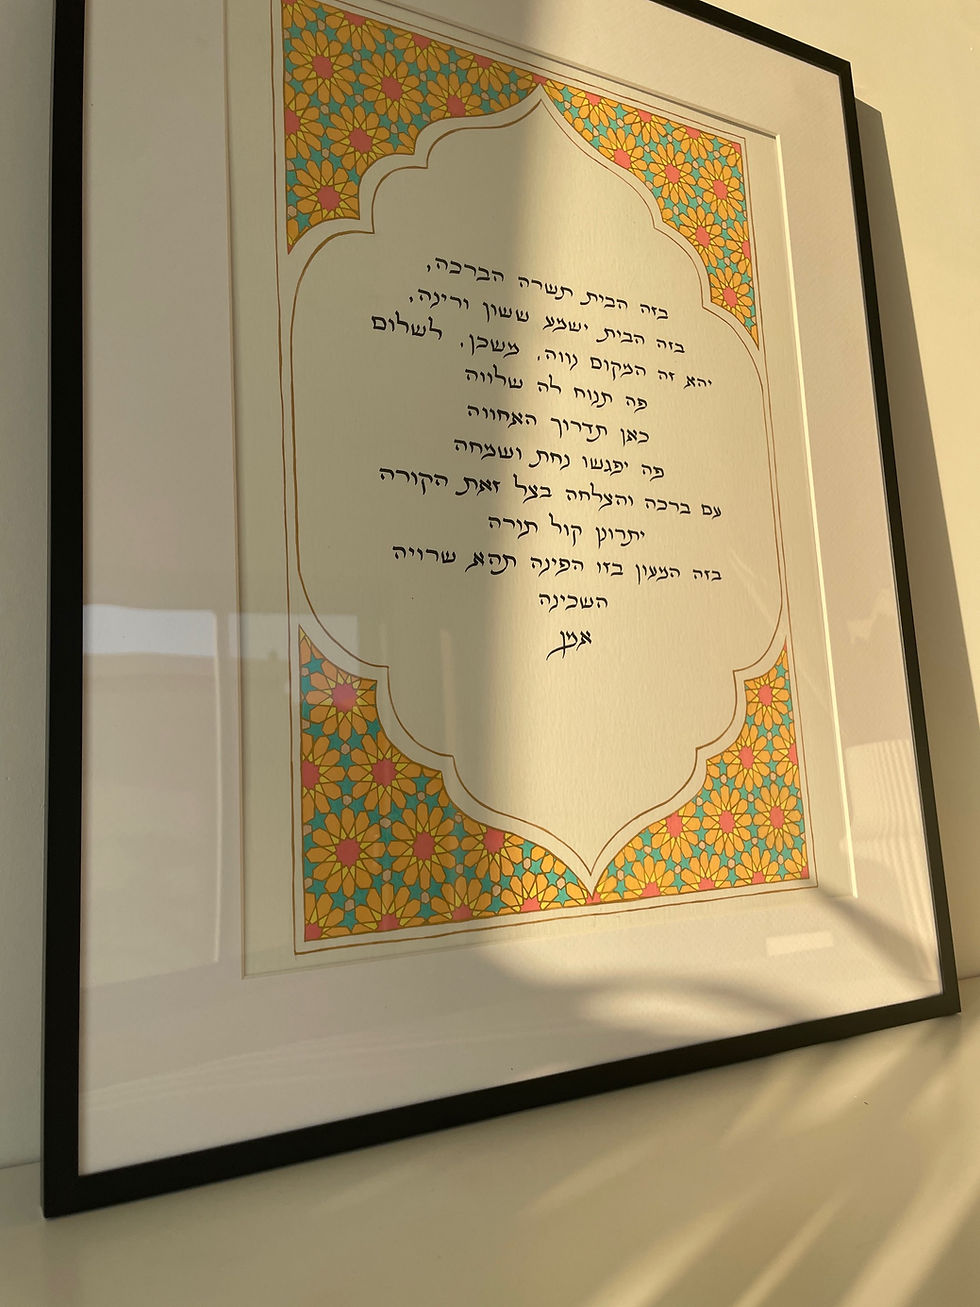 בזה הבית תשרה הברכה,
בזה הבית ישמע ששון ורינה,
יהא זה המקום נווה, משכן, לשלום
פה תנוח לה שלווה
כאן תדרוך האחווה
פה יפגשו נחת ושמחה
עם ברכה והצלחה בצל זאת הקורה
יתרונן קול תורה
בזה המעון בזו הפינה תהא שרויה
השכינה
אמן